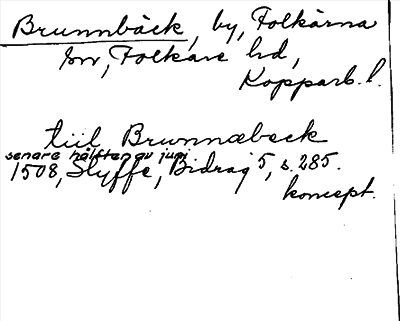 Brunnbäck, by, Folkärna
sn, Folkare hd,
Kopparb. l.
tiil Brunnæbeck
senare hälften av juni
1508, Styffe, Bidrag 5, s. 285.
koncept.